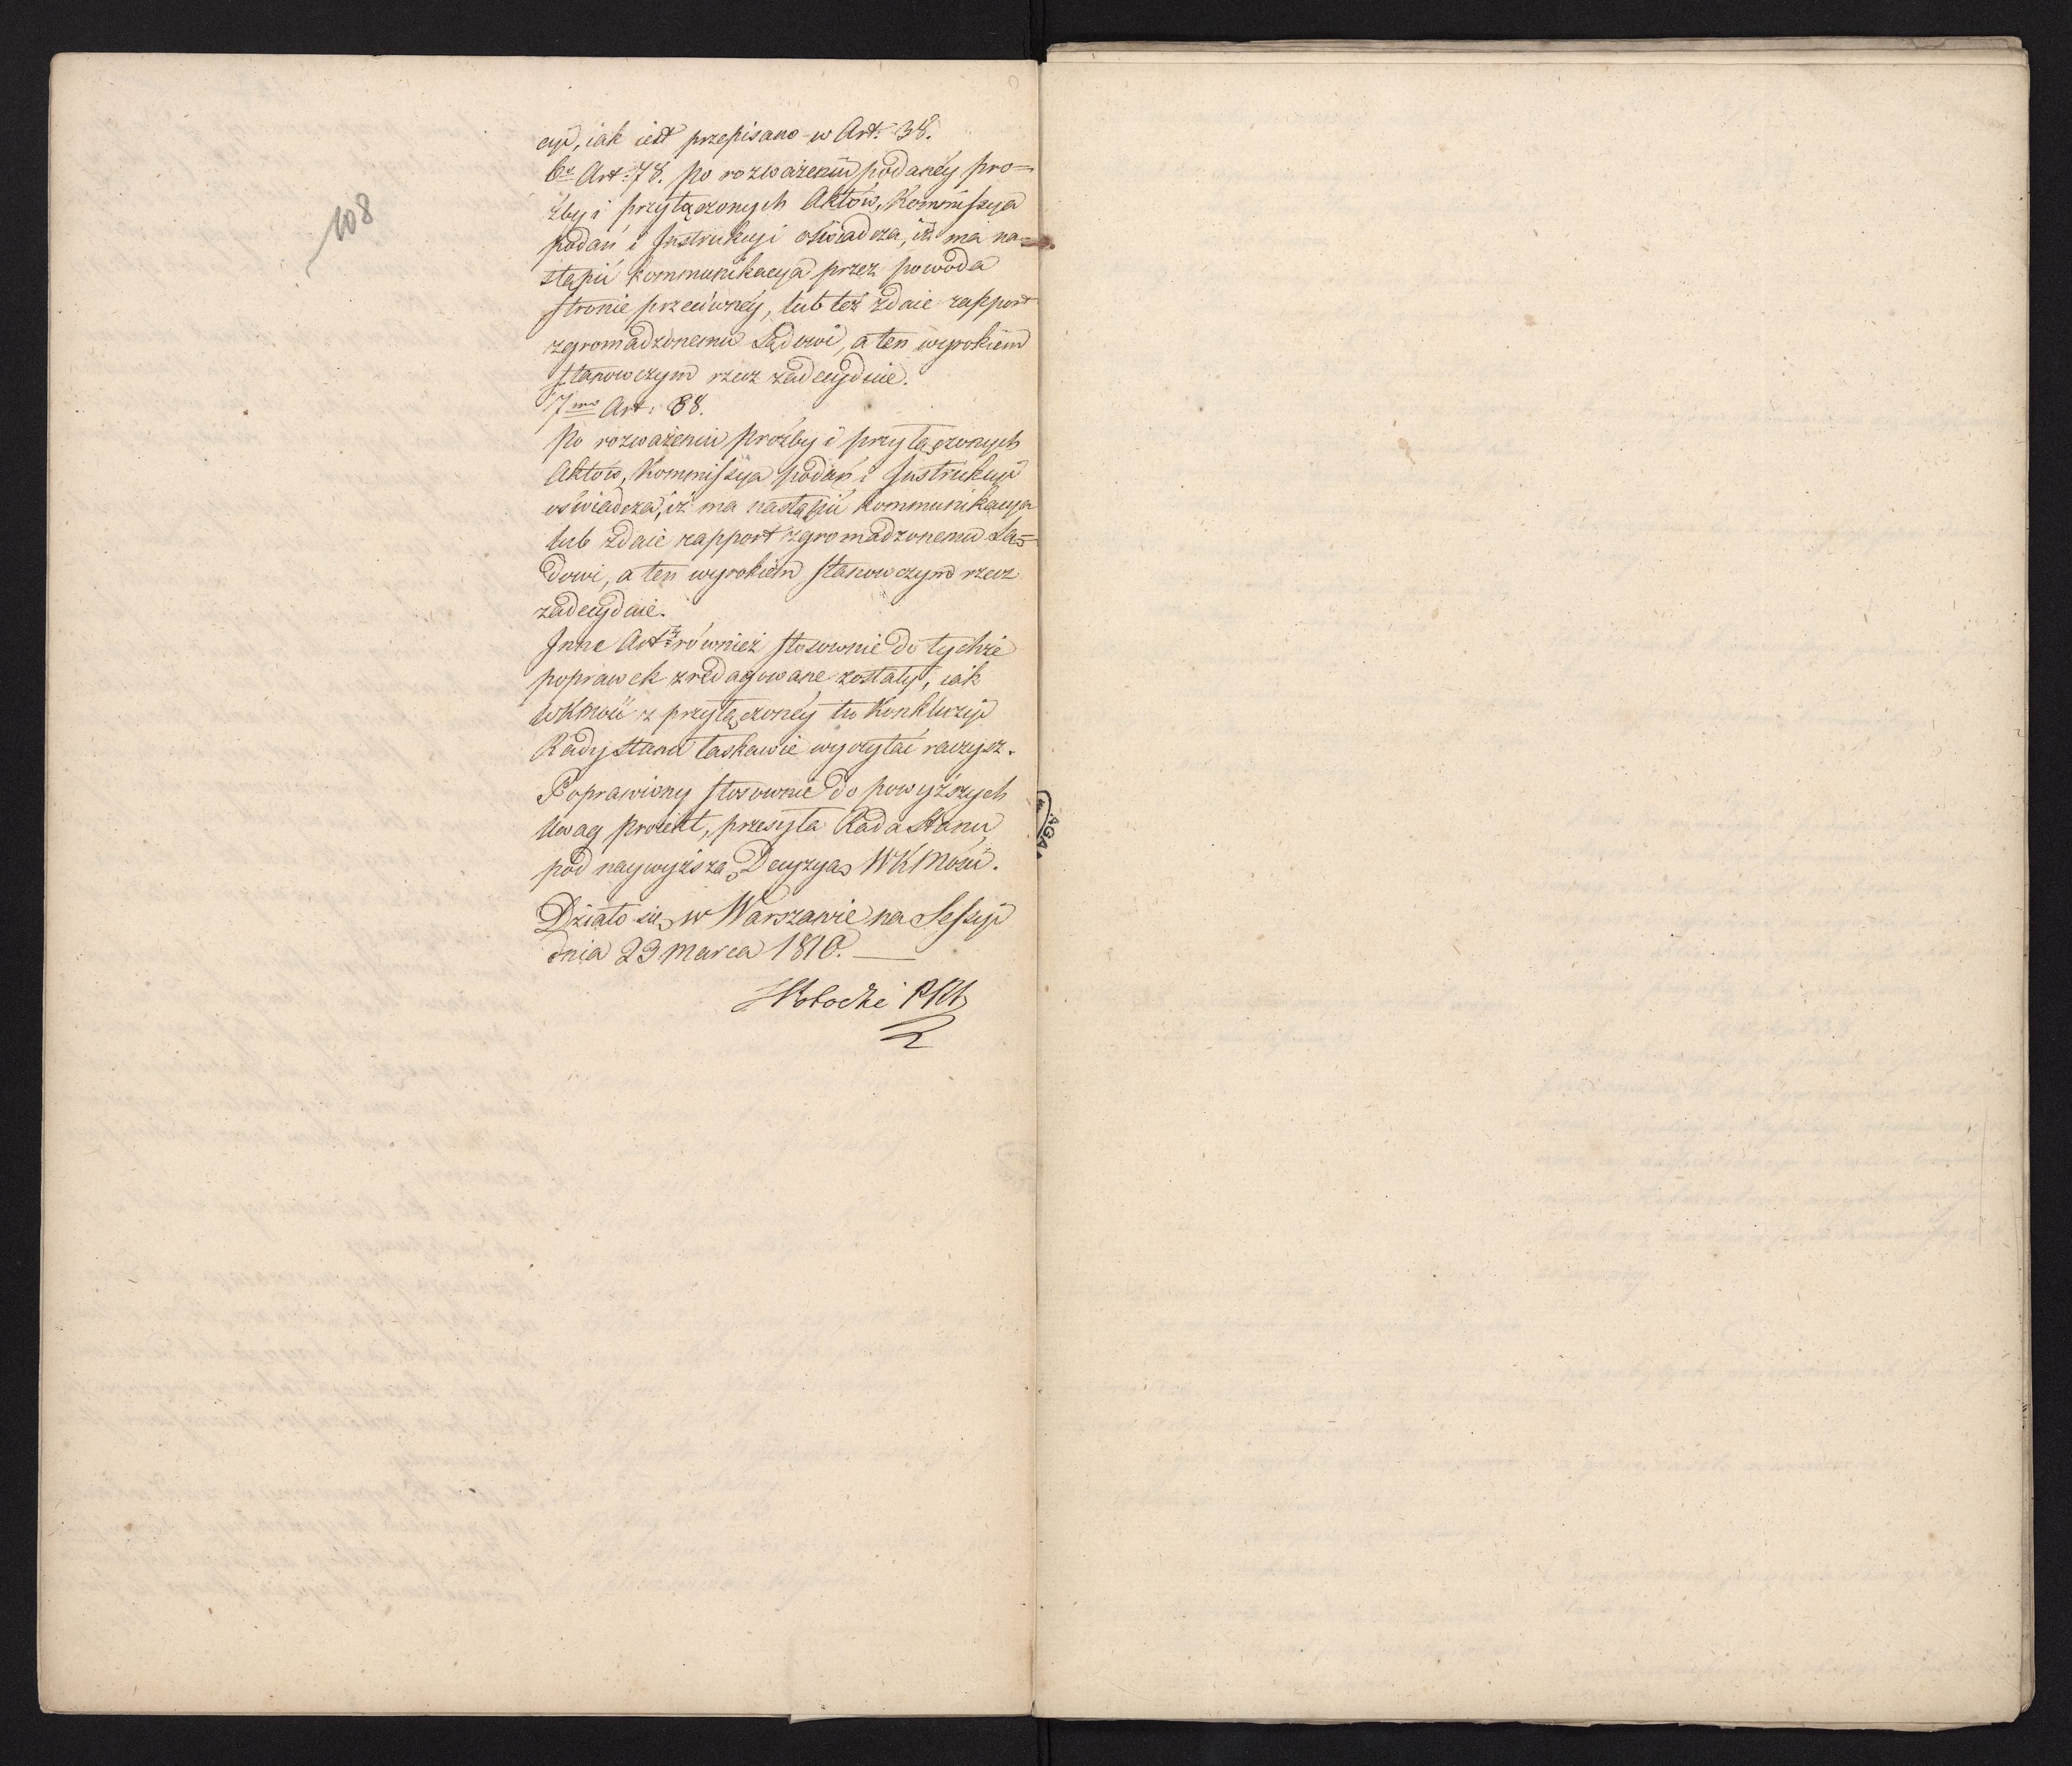 108
cyi, iak iest przepisano w Art: 38.
6e Art: 78. Po rozważeniu podaney pro=
źby i przyłączonych Aktów, Kommissya
podań i Instrukcyi oświadcza, iż ma na=
stąpić kommunikacya przez powoda
stronie przeciwney, lub też zdaie rapport
zgromadzonemu Sądowi, a ten wyrokiem
stanowczym rzecz zadecyduie.
7mo Art: 88.
Po rozważeniu proźby i przyłączonych
Aktów, Kommissya podań i Instrukcyi
oświadcza, iż ma nastąpić kommunikacya
lub zdaie rapport zgromadzonemu Są=
dowi, a ten wyrokiem stanowczym rzecz
zadecyduie.
Inne Artł również stosownie do tychże
poprawek zredagowane zostały, iak
WKMość z przyłączoney tu Konkluzyi
Rady Stanu łaskawie wyczytać raczysz.
Poprawiony stosownie do powyższych
Uwag proiekt, przesyła Rada Stanu
pod naywyższą Decyzyą WKMości.
Działo się w Warszawie na Sessyi
dnia 23 Marca 1810.
AGA